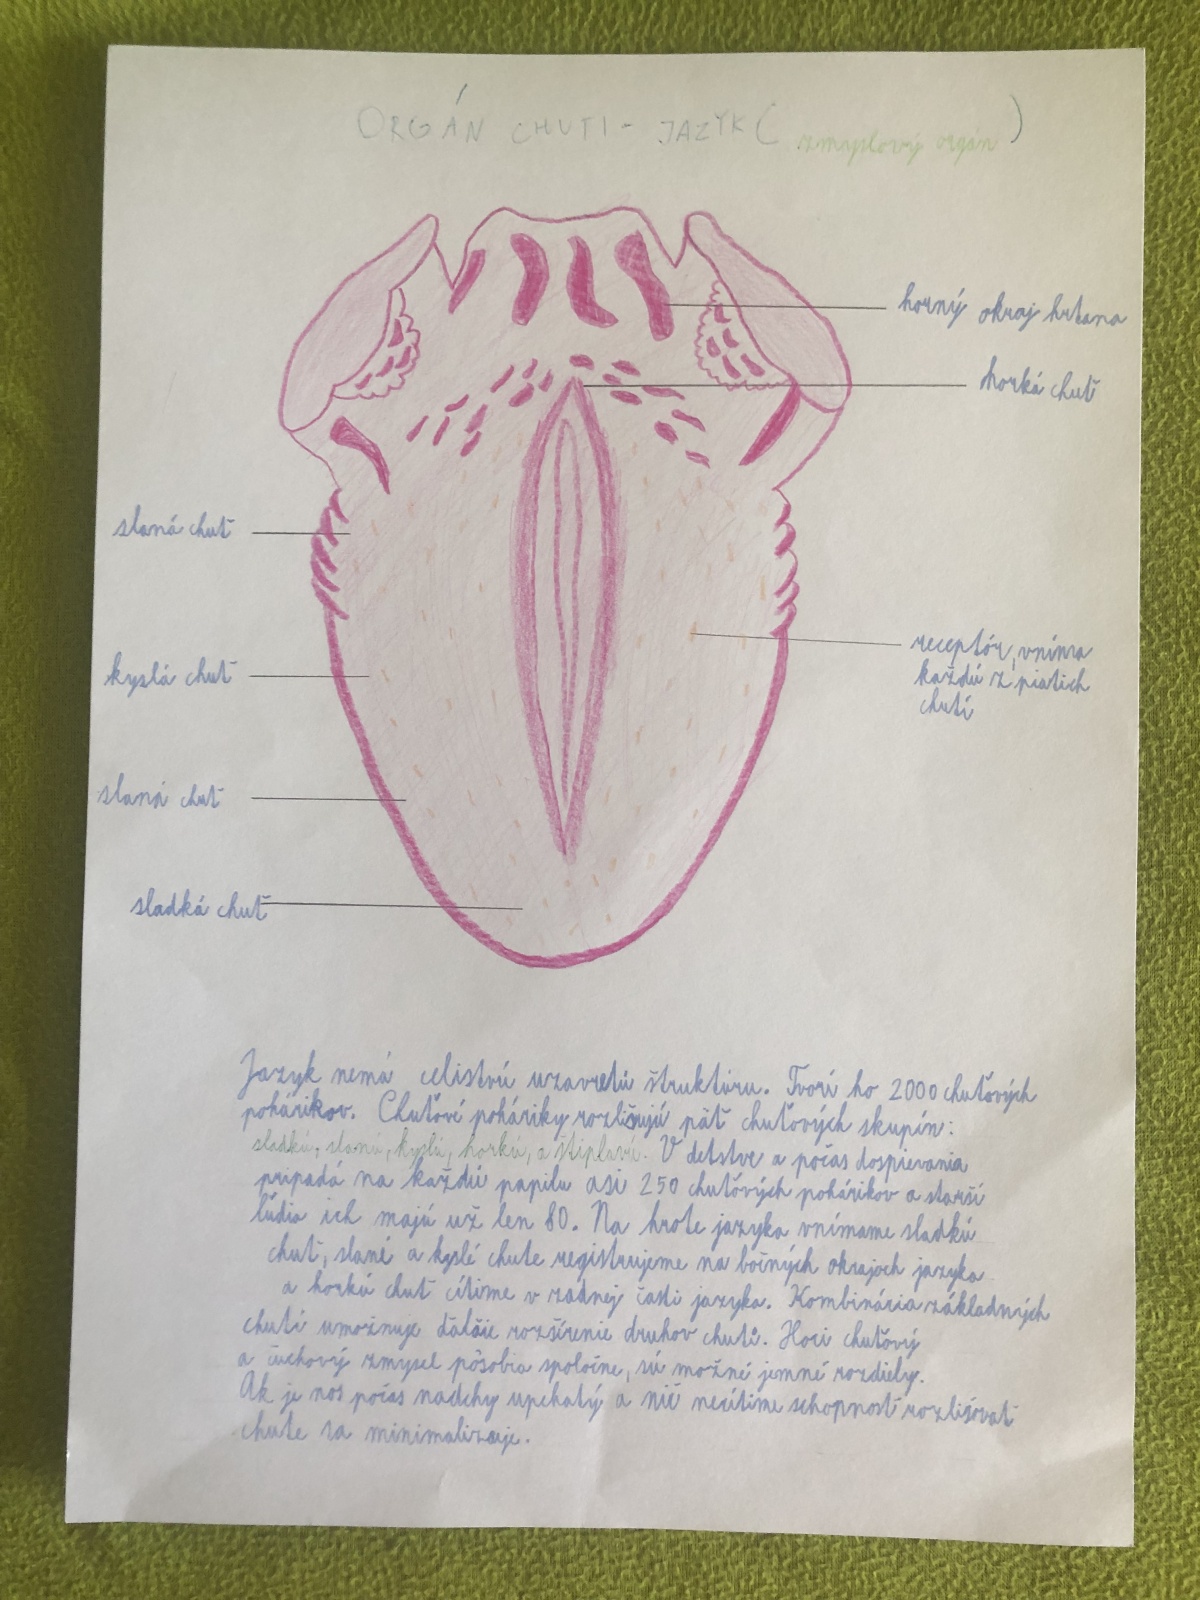 ORGÁN CHUTI - JAZYK ( zmyslový orgán )
horný okraj hrtana
horká chuť
slaná chuť
receptór, vníma
každú z piatich
chutí
kyslá chuť
slaná chuť
sladká chuť
Jazyk nemá celistvú uzavretú štruktúru. Tvorí ho 2000 chuťových
pohárikov. Chuťové poháriky rozlišujú päť chuťových skupín:
sladkú, slanú, kyslú, horkú, a štiplavú. V detstve a počas dospievania
pripadá na každú papilu asi 250 chuťových pohárikov a starší
ľúdia ich majú už len 80. Na hrote jazyka vnímame sladkú
chuť, slané a kyslé chute registrujeme na bočných okrajoch jazyka
a horkú chuť cítime v zadnej časti jazyka. Kombinácia základných
chutí umožnuje ďalšie rozšírenie druhov chutí. Hoci chuťový
a čuchový zmysel pôsobia spoločne, sú možné jemné rozdiely.
Ak je nos počas nádchy upchatý a nič necítime schopnosť rozlišovať
chute sa minimalizuje.